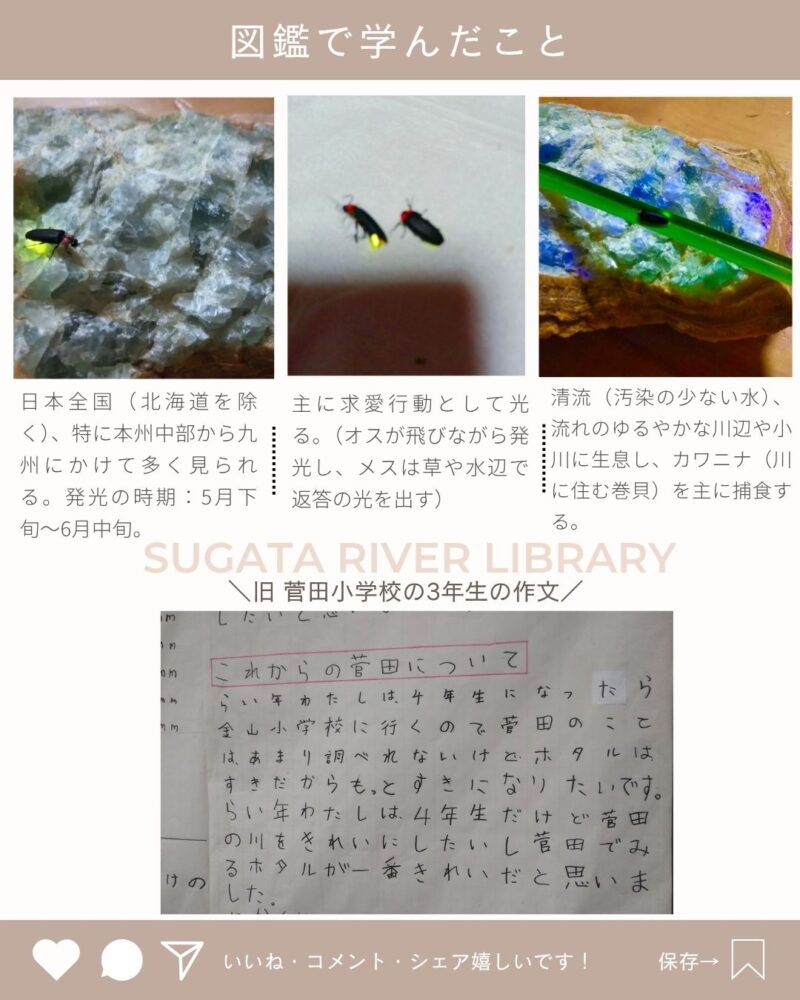 図鑑で学んだこと
日本全国（北海道を除
く）、特に本州中部から九
州にかけて多く見られ
る。発光の時期：5月下
旬〜6月中旬。
主に求愛行動として光
る。（オスが飛びながら発
光し、メスは草や水辺で
返答の光を出す）
清流（汚染の少ない水）、
流れのゆるやかな川辺や小
川に生息し、カワニナ（川
に住む巻貝）を主に捕食す
る。
SUGATA RIVER LIBRARY
＼旧 菅田小学校の3年生の作文／
mm
これからの菅田について
らい年わたしは、4年生になったら
金山小学校に行くので菅田のこと
は、あまり調べれないけど、ホタルは
すきだからもっとすきになりたいです。
らい年わたしは、4年生だけど菅田
の川をきれいにしたいし菅田でみ
るホタルが一番きれいだと思いま
した。
けの
いいね・コメント・シェア嬉しいです！
保存→